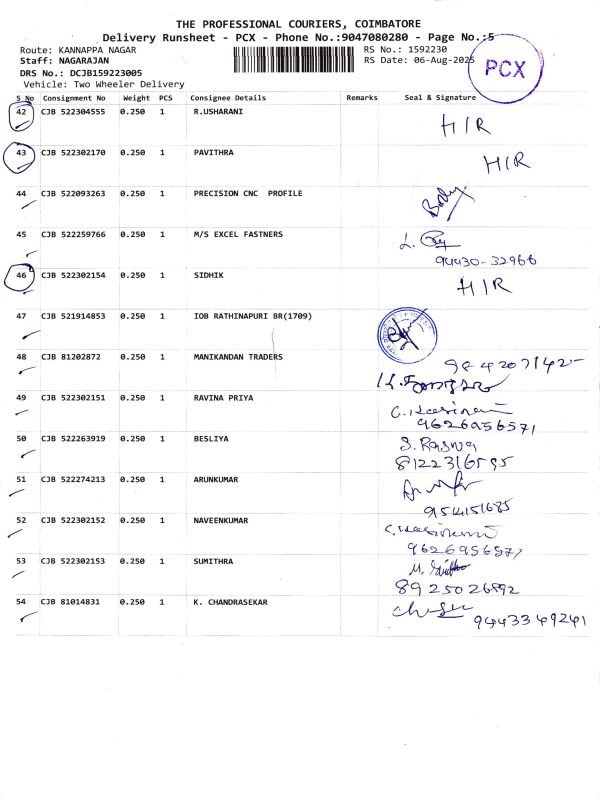 THE PROFESSIONAL COURIERS, COIMBATORE
Delivery Runsheet - PCX - Phone No.:9047080280 - Page No.:5
Route: KANNAPPA NAGAR RS No.: 1592230
Staff: NAGARAJAN RS Date: 06-Aug-2025
PCX
DRS No.: DCJB159223005
Vehicle: Two Wheeler Delivery
S No Consignment No Weight PCS Consignee Details Remarks Seal & Signature
42 CJB 522304555 0.250 1 R.USHARANI H/R
43 CJB 522302170 0.250 1 PAVITHRA H/R
44 CJB 522093263 0.250 1 PRECISION CNC PROFILE
45 CJB 522259766 0.250 1 M/S EXCEL FASTNERS
94430-32966
46 CJB 522302154 0.250 1 SIDHIK H/R
47 CJB 521914853 0.250 1 IOB RATHINAPURI BR(1709)
48 CJB 81202872 0.250 1 MANIKANDAN TRADERS
49 CJB 522302151 0.250 1 RAVINA PRIYA
9626956571
50 CJB 522263919 0.250 1 BESLIYA
51 CJB 522274213 0.250 1 ARUNKUMAR
52 CJB 522302152 0.250 1 NAVEENKUMAR
9626956571
53 CJB 522302153 0.250 1 SUMITHRA
54 CJB 81014831 0.250 1 K. CHANDRASEKAR
9443349241